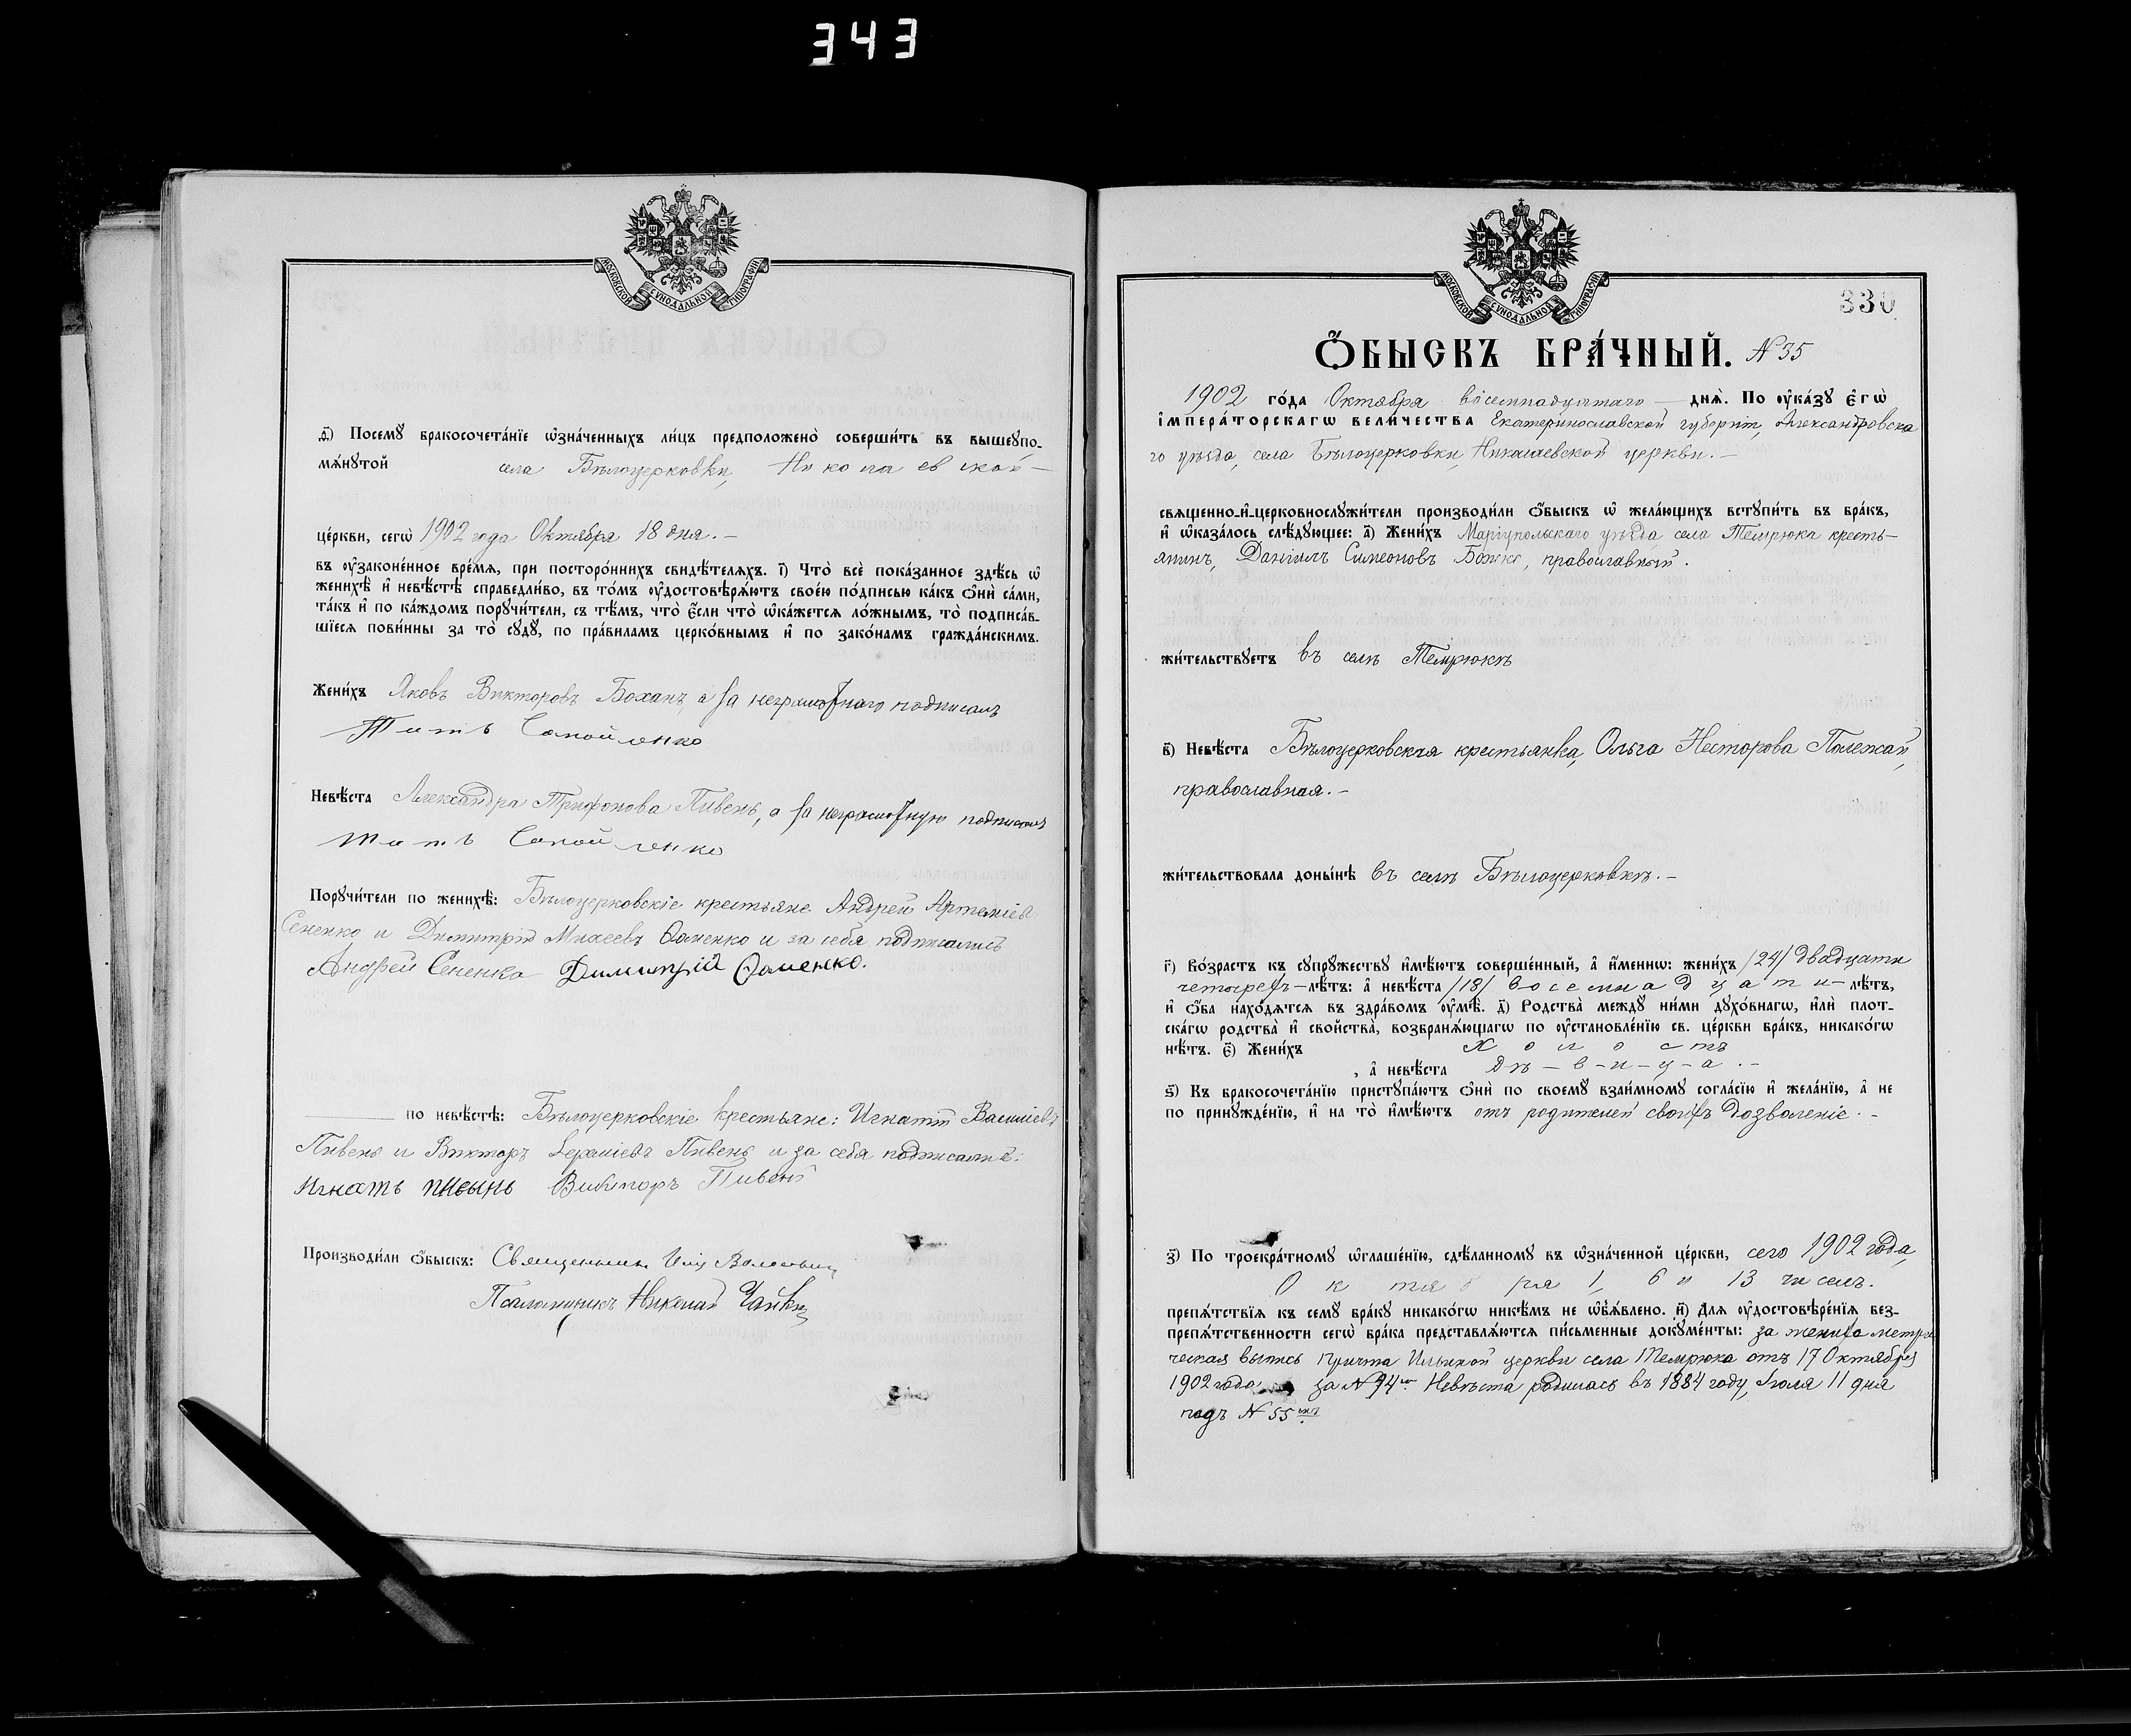 343
МОСКОВСКОЙ СѴНОДАЛЬНОЙ ТИПОГРАФІИ
Ѳ҃) Посемꙋ̀ бракосочета́нїе ѡ҆зна́ченныхъ ли́цъ предположено̀ соверши́ть въ вышеꙋпо-
мѧ́нꙋтой села Бѣлоцерковки, Николаевской —
це́ркви, сегѡ̀ 1902 года Октября 18 дня. —
въ ᲂу҆зако́ненное вре́мѧ, при посторо́ннихъ свидѣ́телѧхъ. І҃) Что̀ всѐ пока́занное здѣ́сь ѡ҆
женихѣ̀ и҆ невѣ́стѣ справедли́во, въ то́мъ ᲂу҆достовѣрѧ́ютъ свое́ю по́дписью ка́къ ѻ҆нѝ са́ми,
та́къ и҆ по ка́ждомъ порꙋчи́тели, съ тѣ́мъ, что̀ є҆́сли что̀ ѡ҆ка́жетсѧ ло́жнымъ, то̀ подписа́в-
шїесѧ пови́нны за то̀ сꙋдꙋ̀, по пра́виламъ церко́внымъ и҆ по зако́намъ гражда́нскимъ.
Жени́хъ Яковъ Викторовъ Боханъ, а за неграмотнаго подписалъ
Титъ Самойленко
Невѣ́ста Александра Трифонова Пивень, а за неграмотную подписалъ
Титъ Самойленко
Порꙋчи́тели по женихѣ̀: Бѣлоцерковскіе крестьяне Андрей Артеміевъ
Сененко и Димитрій Михеевъ Ѳоменко и за себя подписались
Андрей Сененко Димитрій Ѳоменко.
по невѣ́стѣ: Бѣлоцерковскіе крестьяне: Игнатій Василіевъ
Пивень и Викторъ Пивень и за себя подписались:
Игнатъ пивынь Викторъ Пивень
Производи́ли ѻ҆́быскъ: Священникъ
Псаломщикъ Николай
МОСКОВСКОЙ СѴНОДАЛЬНОЙ ТИПОГРАФІИ
330
Ѻ҆́БЫСКЪ БРА́ЧНЫЙ. N 35
1902 го́да Октября восемнадцатаго — днѧ̀. По ᲂу҆ка́зꙋ є҆гѡ̀
і҆мпера́торскагѡ вели́чества Екатеринославской губерніи, Александровска
го уѣзда, села Бѣлоцерковки, Николаевской церкви. —
свѧщенно-и҆-церковнослꙋжи́тели производи́ли ѻ҆́быскъ ѡ҆ жела́ющихъ встꙋпи́ть въ бра́къ,
и҆ ѡ҆каза́лось слѣ́дꙋющее: а҃) Жени́хъ Маріупольскаго уѣзда села Темрюка кресть-
янинъ, Даніилъ Симеоновъ Божко, православный.
жи́тельствꙋетъ въ селѣ Темрюкѣ
в҃) Невѣ́ста Бѣлоцерковская крестьянка, Ольга Несторова Полежай,
православная. —
жи́тельствовала доны́нѣ въ селѣ Бѣлоцерковкѣ. —
г҃) Во́зрастъ къ сꙋпрꙋ́жествꙋ и҆мѣ́ютъ соверше́нный, а҆ и҆́меннѡ: жени́хъ /24/ двадцати
четырехъ — лѣ́тъ: а҆ невѣ́ста /18/ восемнадцати — лѣ́тъ,
и҆ ѻ҆́ба нахо́дѧтсѧ въ здра́вомъ ᲂу҆мѣ̀. д҃) Родства̀ междꙋ̀ ни́ми дꙋхо́внагѡ, и҆лѝ плот-
ска́гѡ родства̀ и҆ сво́йства, возбранѧ́ющагѡ по ᲂу҆становле́нїю св. це́ркви бра́къ, никако́гѡ
нѣ́тъ. є҃) Жени́хъ Холостъ
, а҆ невѣ́ста Дѣ — в — и — ц — а. —
ѕ҃) Къ бракосочета́нїю пристꙋпа́ютъ ѻ҆нѝ по своемꙋ̀ взаи́мномꙋ согла́сїю и҆ жела́нїю, а҆ не
по принꙋжде́нїю, и҆ на то̀ и҆мѣ́ютъ отъ родителей своихъ дозволеніе. —
з҃) По троекра́тномꙋ ѡ҆глаше́нїю, сдѣ́ланномꙋ въ ѡ҆зна́ченной це́ркви, сего 1902 года,
Октября 1, 6 и 13 чиселъ.
препѧ́тствїѧ къ семꙋ̀ бра́кꙋ никако́гѡ никѣ́мъ не ѡ҆бъѧ́влено. и҃) Длѧ̀ ᲂу҆достовѣре́нїѧ без-
препѧ́тственности сегѡ̀ бра́ка представлѧ́ютсѧ пи́сьменные докꙋме́нты: за жениха метри
ческая выпись Причта Ильинской церкви села Темрюка отъ 17 Октября
1902 года за N 94 Невѣста родилась въ 1884 году, Іюля 11 дня
подъ N 55